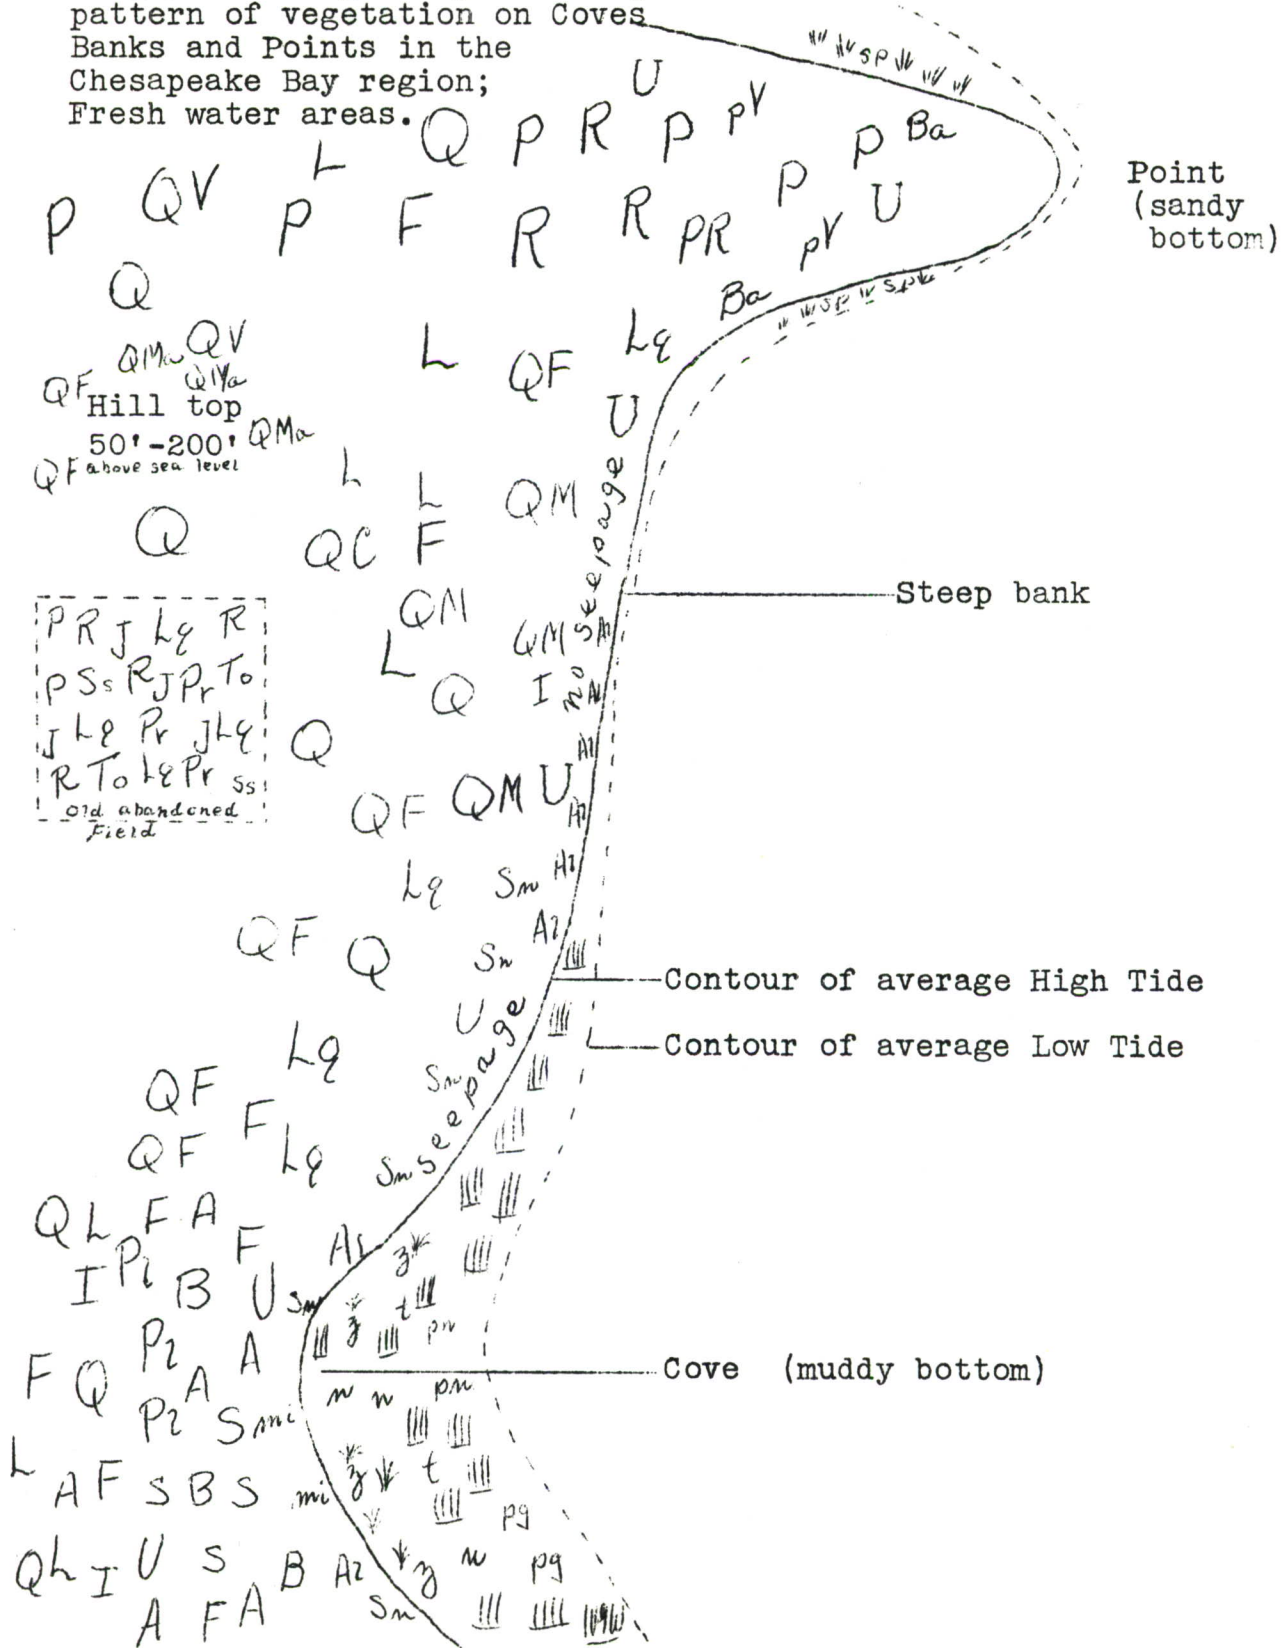 pattern of vegetation on Coves
Banks and Points in the
Chesapeake Bay region;
Fresh water areas.
U
sp
L Q P R P PV P Ba
P QV P F R R PR P PV U
Point
(sandy
bottom)
Q
Ba sp
QMa QV
L QF Lq
QF QMa
Hill top
50'-200' QMa
QF above sea level
U
L L QM
Q QC F
no seepage
Steep bank
QM
P R J Lq R
L QM
P Ss R J Pr To
Q I
J Lq Pr J Lq
Q
R To Lq Pr Ss
Old abandoned
Field
QF QM U
Lq Sm Al
QF Q Sm Al
Contour of average High Tide
U
seepage
Contour of average Low Tide
Lq
QF Sm
F
QF Lq Sm
QL F A
F
I B U Sm
z t pn
A
F Q A
Cove (muddy bottom)
S mi n n pn
L
A F S B S mi z t
pg
QL I U S B z n pg
A F A Sm